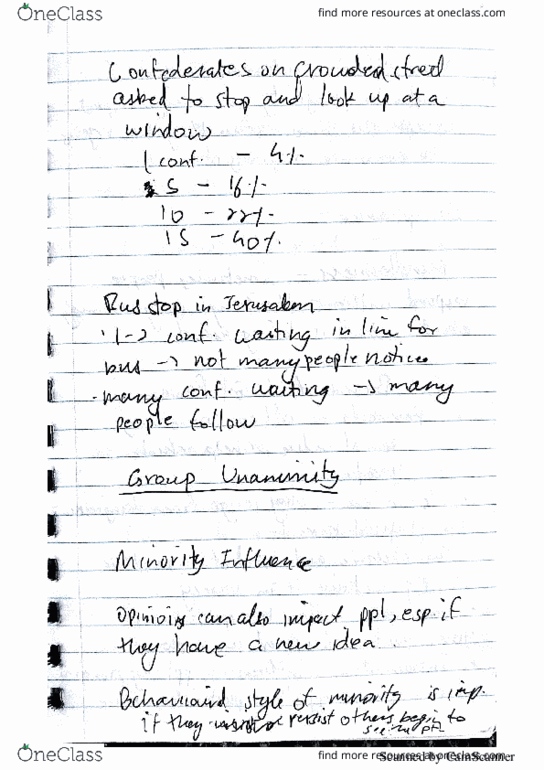 OneClass
find more resources at oneclass.com
Confederates on crowded street
asked to stop and look up at a
window
1 conf. - 4%
5 - 16%
10 - 22%
15 - 40%
Bus stop in Jerusalem
1-2 conf. waiting in line for
bus -> not many people notice
- many conf. waiting -> many
people follow
Group Unanimity
Minority Influence
Opinions can also impact ppl, esp if
they have a new idea.
Behavioural style of minority is imp.
if they or persist others begin to
see
OneClass
find more resources at oneclass.com
Scanned by CamScanner